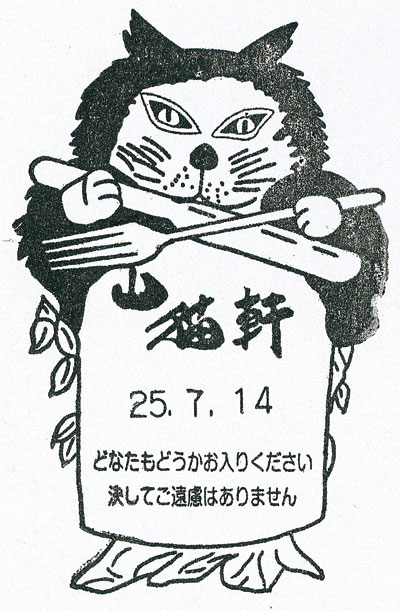 山猫軒
25.7.14
どなたもどうかお入りください
決してご遠慮はありません